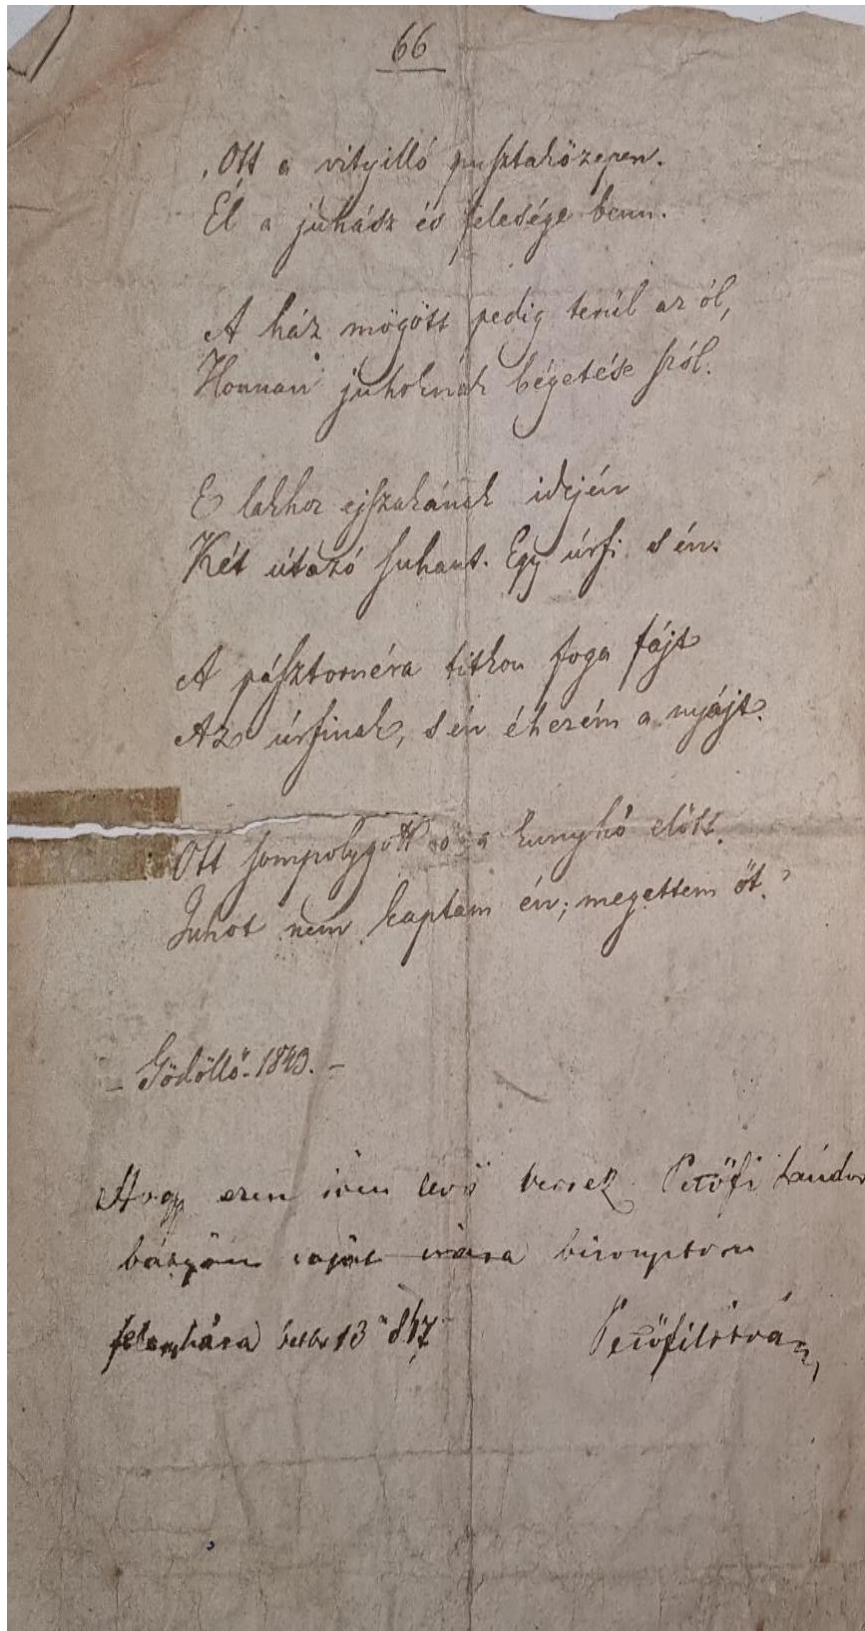 66
„Ott a vityilló pusztaközepen.
Él a juhász és felesége benn.
A ház mögött pedig terül az ól,
Honnan juhoknak bégetése szól.
E lakhoz ejszakának idején
Két útazó suhant. Egy úrfi s én.
A pásztornéra titkon foga fájt
Az úrfinak, s én éhezém a nyájt.
Ott sompolygott ő a kunyhó előtt.
Juhot nem kaptam én; megettem őt.”
– Gödöllő. 1843. –
Hogy ezen iven levő versek Petőfi Sándor
bátyám saját irása bizonyitom
13 Petőfi István